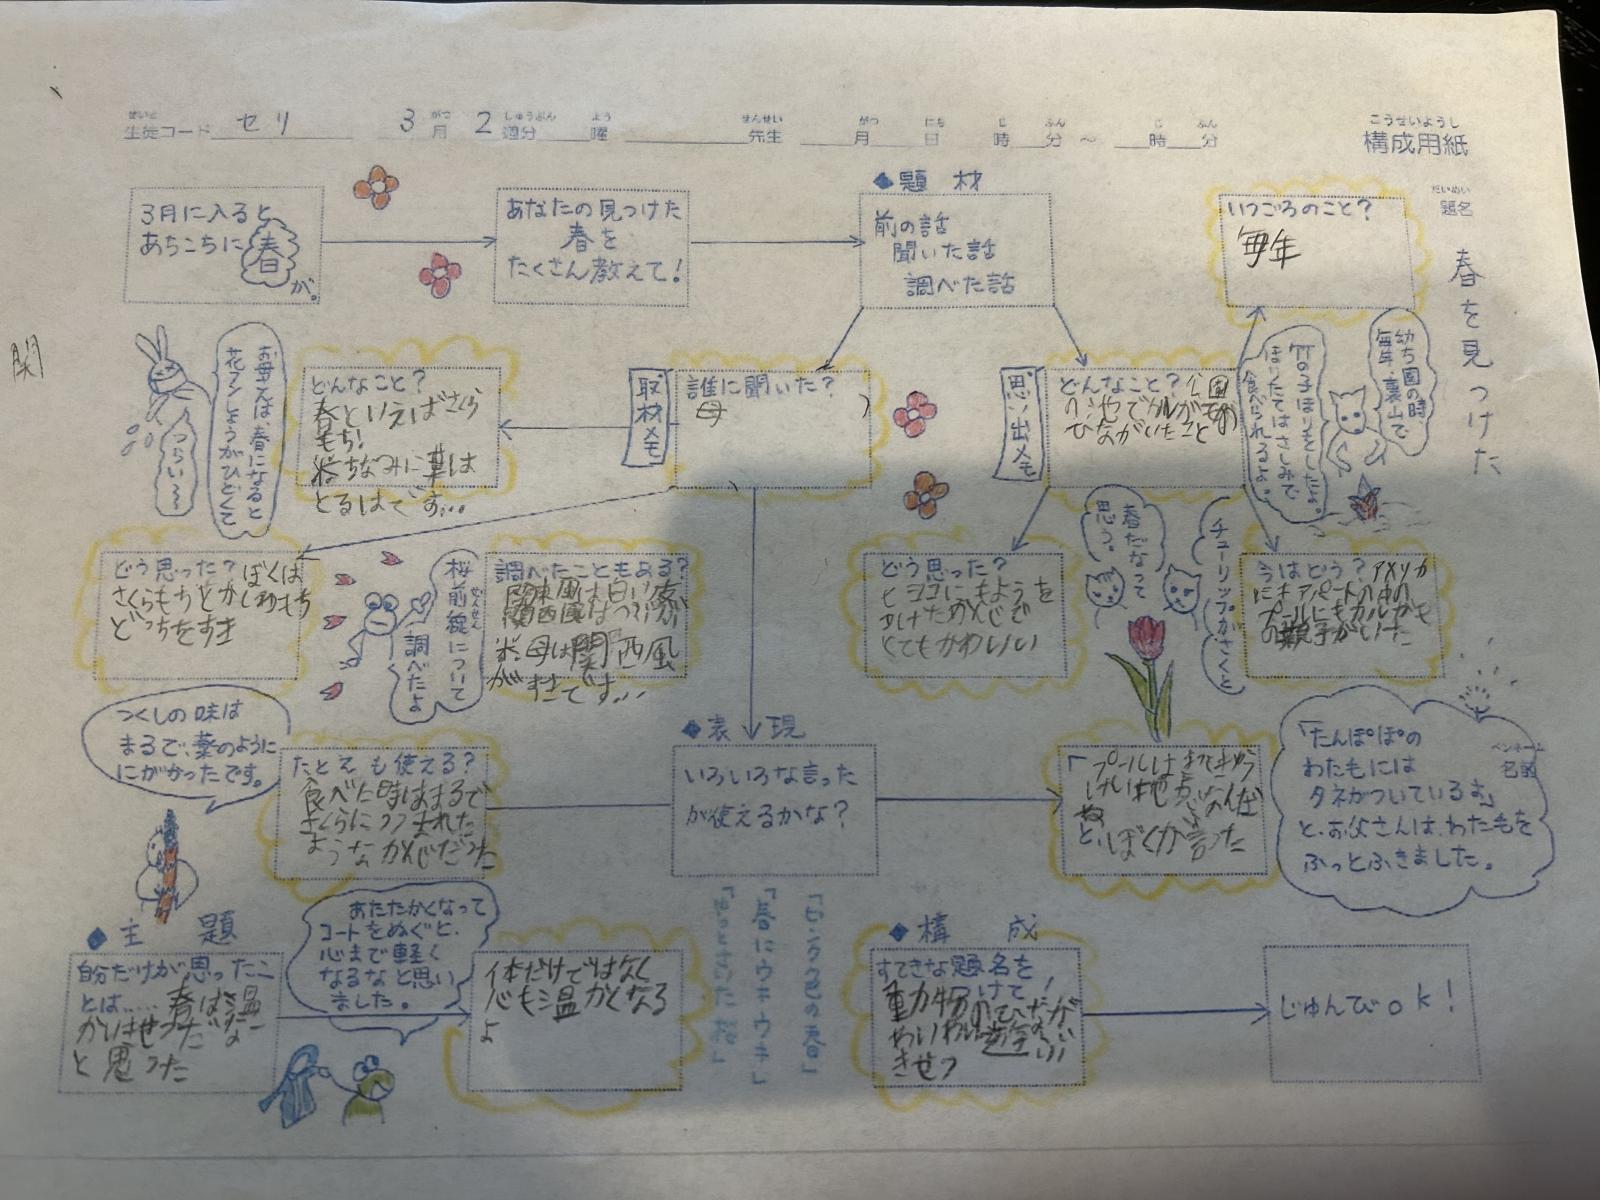 せいと
生徒コード セリ 3月 2週分 曜 先生 月 日 時 分 ～ 時 分
がつ しゅうぶん よう せんせい がつ にち じ ふん じ ふん
こうせいようし
構成用紙
だいめい
題名
春を見つけた
3月に入ると
あちこちに春
が。
あなたの見つけた
春を
たくさん教えて！
◆題材
前の話
聞いた話
調べた話
いつごろのこと？
毎年
幼ち園の時、
毎年、裏山で
竹の子ほりをしたよ。
ほりたてはさしみで
食べられるよ。
関
お母さんは、春になると
花フンしょうがひどくて
つらい〜
どんなこと？
春といえばさくら
もち！
※ちなみに葉は
とるはです…
取材メモ
誰に聞いた？
母
思い出メモ
どんなこと？公園
どう思った？ぼくは
さくらもちとか
どっちもすき
桜前線について
ぜんせん
調べたよ
調べたこともある？
※母は関西風
が
すきです…
どう思った？
とてもかわいい
春だなって
思う。
チューリップがさくと
今はどう？アメリカ
つくしの味は
まるで、薬のように
にがかったです。
たとえ も使える？
食べた時はまるで
さくらにつつまれた
ようなかんじだった
◆表現
いろいろな言った
が使えるかな？
と、ぼくが言った
「たんぽぽの
わたもには
タネがついているよ」
と、お父さんは、わたもを
ふっとふきました。
ペンネーム
名前
◆主題
自分だけが思ったこ
とは……春は温
かいきせつだな
と思った
あたたかくなって
コートをぬぐと、
心まで軽く
なるなと思い
ました。
体だけではなく
心も温かくなる
よ
「ピンク色の春」
「春にウキウキ」
◆構成
すてきな題名を
つけて！
きせつ
じゅんびok！